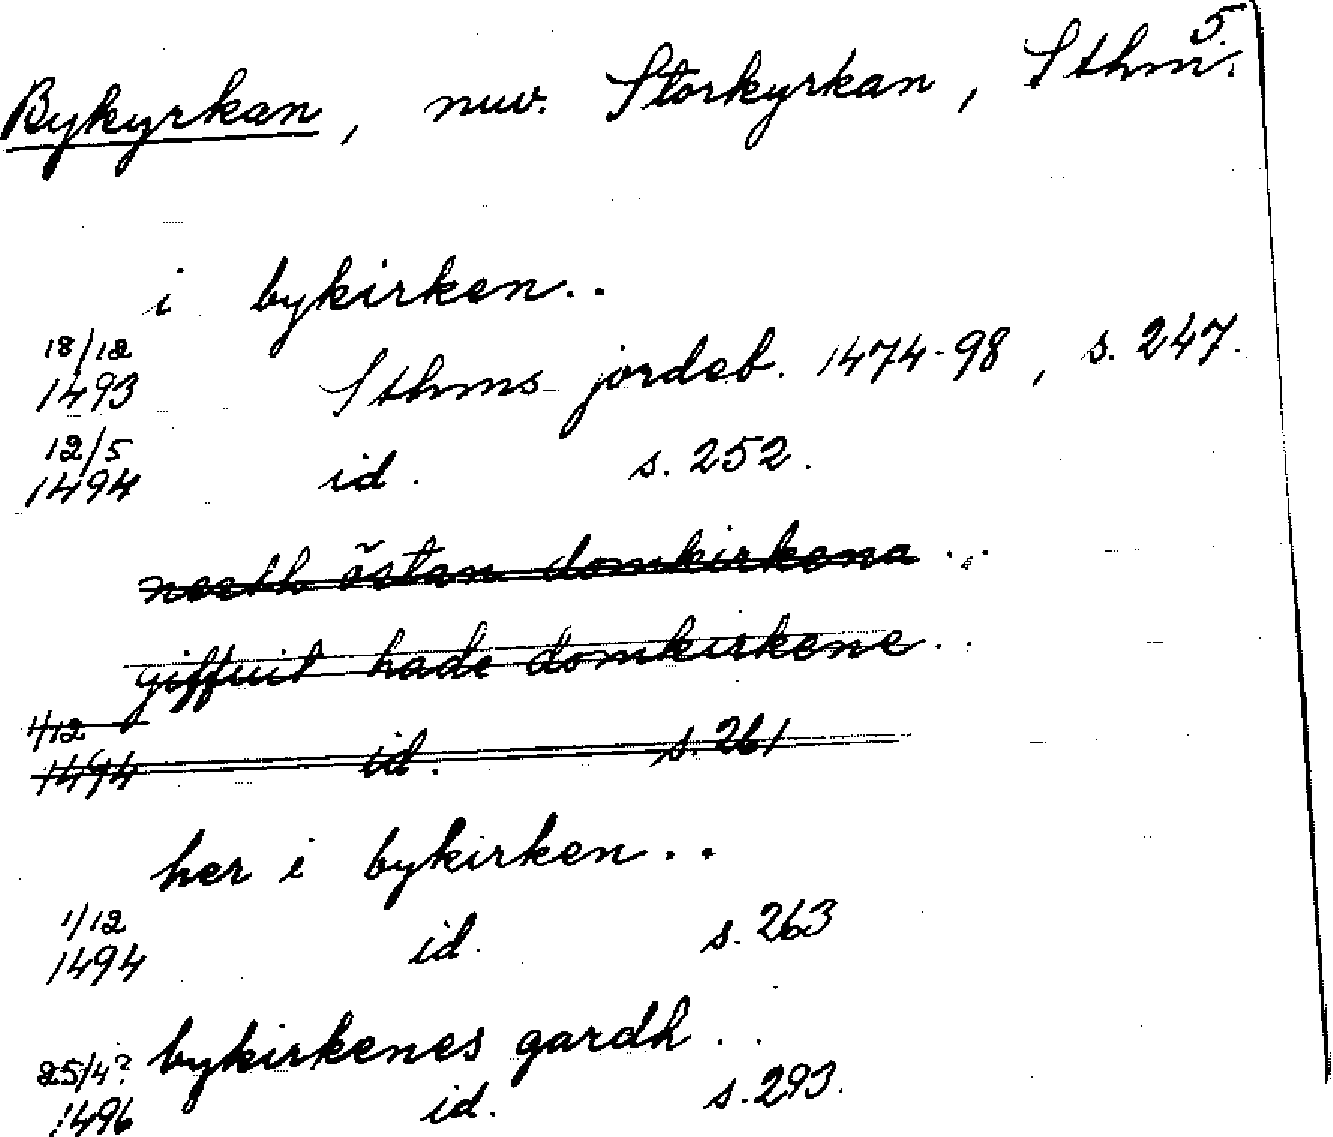 5.
Bykyrkan, nuv. Storkyrkan, Sthm.
i bykirken..
18/12
1493 Sthms jordeb. 1474-98, s. 247.
12/5
1494 id. s. 252.
north östan domkirkena...
giffuit hade domkirkene..
1/12
1494 id. s. 261
her i bykirken..
1/12
1494 id. s. 263
bykirkenes gardh..
25/4?
1496 id. s. 293.